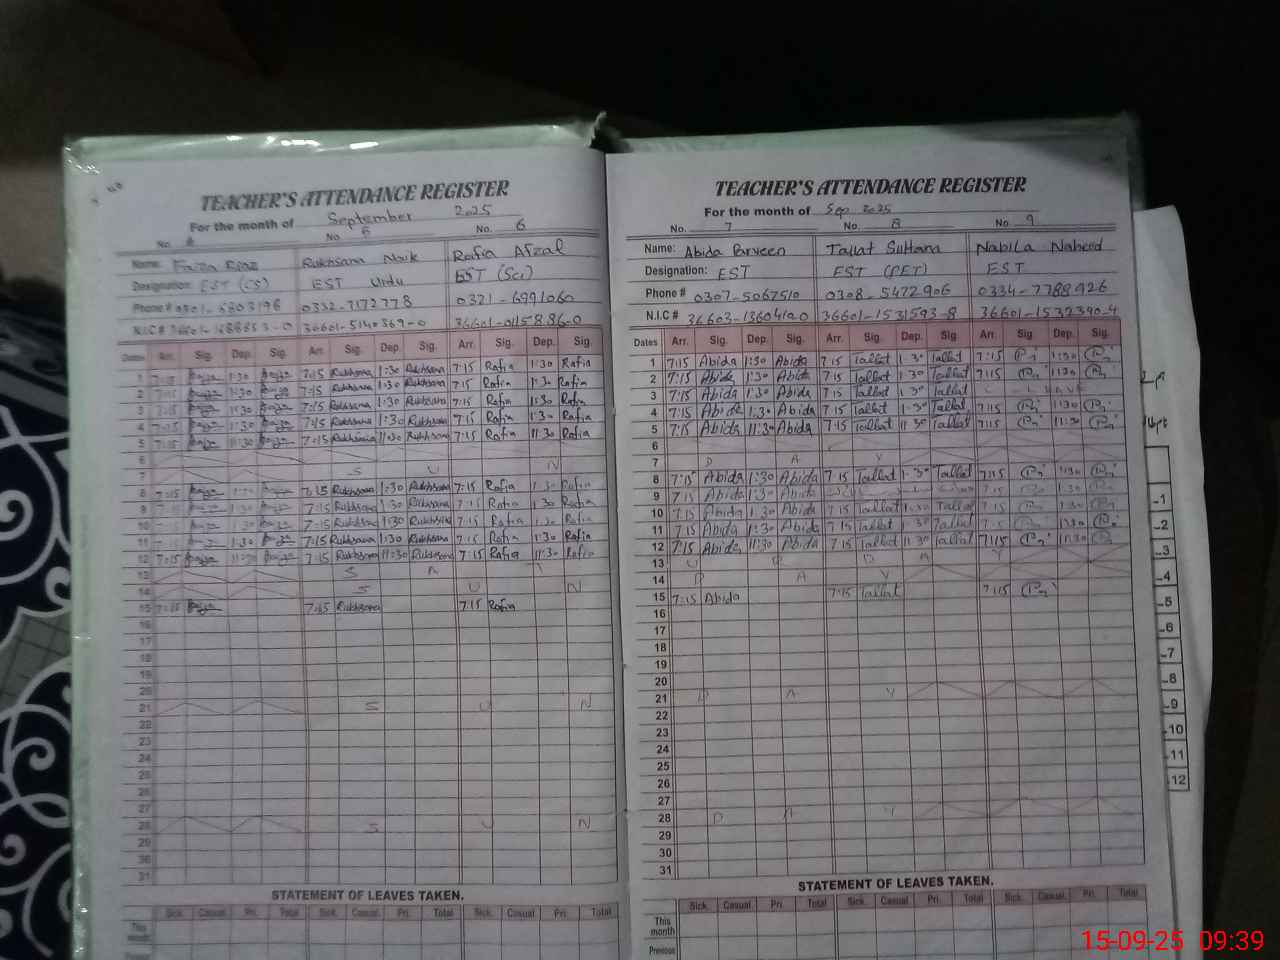 TEACHER'S ATTENDANCE REGISTER
For the month of September 2025
No. 5 6
Name: Faiza Riaz Rukhsana Naik Rafia Afzal
Designation: EST (CS) EST Urdu EST (Sci)
Phone # 0332-7172778 0321-6991060
N.I.C # 36601-5140369-0
Dates Arr. Sig. Dep. Sig. Arr. Sig. Dep. Sig. Arr. Sig. Dep. Sig.
1 7:15 1:30 7:15 Rukhsana 1:30 Rukhsana 7:15 Rafia 1:30 Rafia
2 7:15 1:30 7:15 Rukhsana 1:30 Rukhsana 7:15 Rafia 1:30 Rafia
3 7:15 11:30 7:15 Rukhsana 1:30 Rukhsana 7:15 Rafia 11:30 Rafia
4 7:15 1:30 7:15 Rukhsana 1:30 Rukhsana 7:15 Rafia 1:30 Rafia
5 7:15 11:30 7:15 Rukhsana 11:30 Rukhsana 7:15 Rafia 11:30 Rafia
6
7 S U N
8 7:15 7:15 Rukhsana 1:30 Rukhsana 7:15 Rafia 1:30 Rafia
9 7:15 1:30 7:15 Rukhsana 1:30 Rukhsana 7:15 Rafia 1:30 Rafia
10 7:15 1:30 7:15 Rukhsana 1:30 Rukhsana 7:15 Rafia 1:30 Rafia
11 7:15 1:30 7:15 Rukhsana 1:30 Rukhsana 7:15 Rafia 1:30 Rafia
12 7:15 11:30 7:15 Rukhsana 11:30 Rukhsana 7:15 Rafia 11:30 Rafia
13 S A T
14 S U N
15 7:15 7:15 Rukhsana 7:15 Rafia
16
17
18
19
20
21 S U N
22
23
24
25
26
27
28 S U N
29
30
31
STATEMENT OF LEAVES TAKEN.
Sick. Casual Pri. Total Sick. Casual Pri. Total Sick. Casual Pri. Total
This month
Previous
TEACHER'S ATTENDANCE REGISTER
For the month of Sep 2025
No. 7 No. 8 No 9
Name: Abida Parveen Tallat Sultana Nabila Naheed
Designation: EST EST (PET) EST
Phone # 0307-5067510 0308-5472906 0334-7788926
N.I.C # 36603-1360419-0 36601-1531593-8 36601-1532390-4
Dates Arr. Sig. Dep. Sig. Arr. Sig. Dep. Sig. Arr. Sig. Dep. Sig.
1 7:15 Abida 1:30 Abida 7:15 Tallat 1:30 Tallat 7:15 1:30
2 7:15 Abida 1:30 Abida 7:15 Tallat 1:30 Tallat 7:15 1:30
3 7:15 Abida 1:30 Abida 7:15 Tallat 1:30 Tallat
4 7:15 Abida 1:30 Abida 7:15 Tallat 1:30 Tallat 7:15 1:30
5 7:15 Abida 11:30 Abida 7:15 Tallat 11:30 Tallat 7:15 11:30
6
7 D A Y
8 7:15 Abida 1:30 Abida 7:15 Tallat 1:30 Tallat 7:15 1:30
9 7:15 Abida 1:30 Abida 7:15 1:30
10 7:15 Abida 1:30 Abida 7:15 Tallat 1:30 Tallat 7:15 1:30
11 7:15 Abida 1:30 Abida 7:15 Tallat 1:30 Tallat 7:15 1:30
12 7:15 Abida 11:30 Abida 7:15 Tallat 11:30 Tallat 7:15 11:30
13 U R D A Y
14 D A Y
15 7:15 Abida 7:15 Tallat 7:15
16
17
18
19
20
21 D A Y
22
23
24
25
26
27
28 D A Y
29
30
31
STATEMENT OF LEAVES TAKEN.
Sick. Casual Pri. Total Sick. Casual Pri. Total Sick. Casual Pri. Total
This month
Previous
1
2
3
4
5
6
7
8
9
10
11
12
15-09-25 09:39